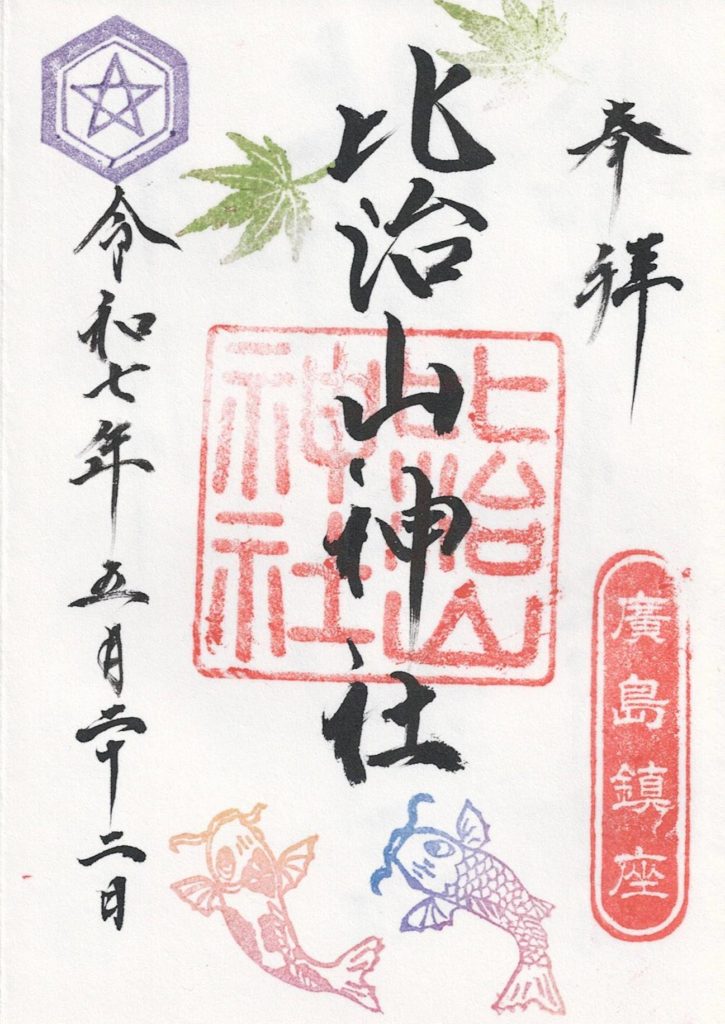 奉拝
廣島鎮座
比治山神社
比治山
神社
令和七年五月二十二日